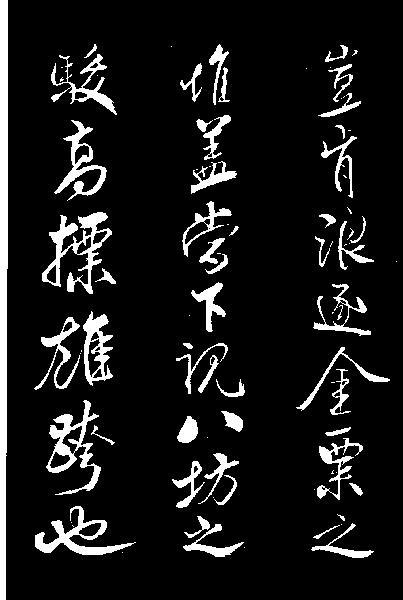 豈肯浪逐金粟之
堆蓋嘗下視八坊之
駿高標雄跨也